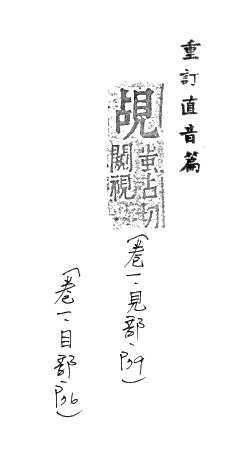 重訂直音篇
覘
蚩占切
闚視
(卷一、見部、P39)
(卷一、目部、P36)